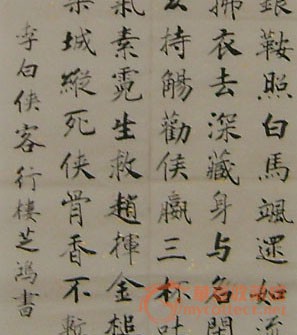 銀鞍照白馬颯遝如
拂衣去深藏身与名閒
亥持觴勸侯嬴三杯吐
氣素霓生救趙揮金槌
梁城縱死俠骨香不慙
李白俠客行樓芝鴻書